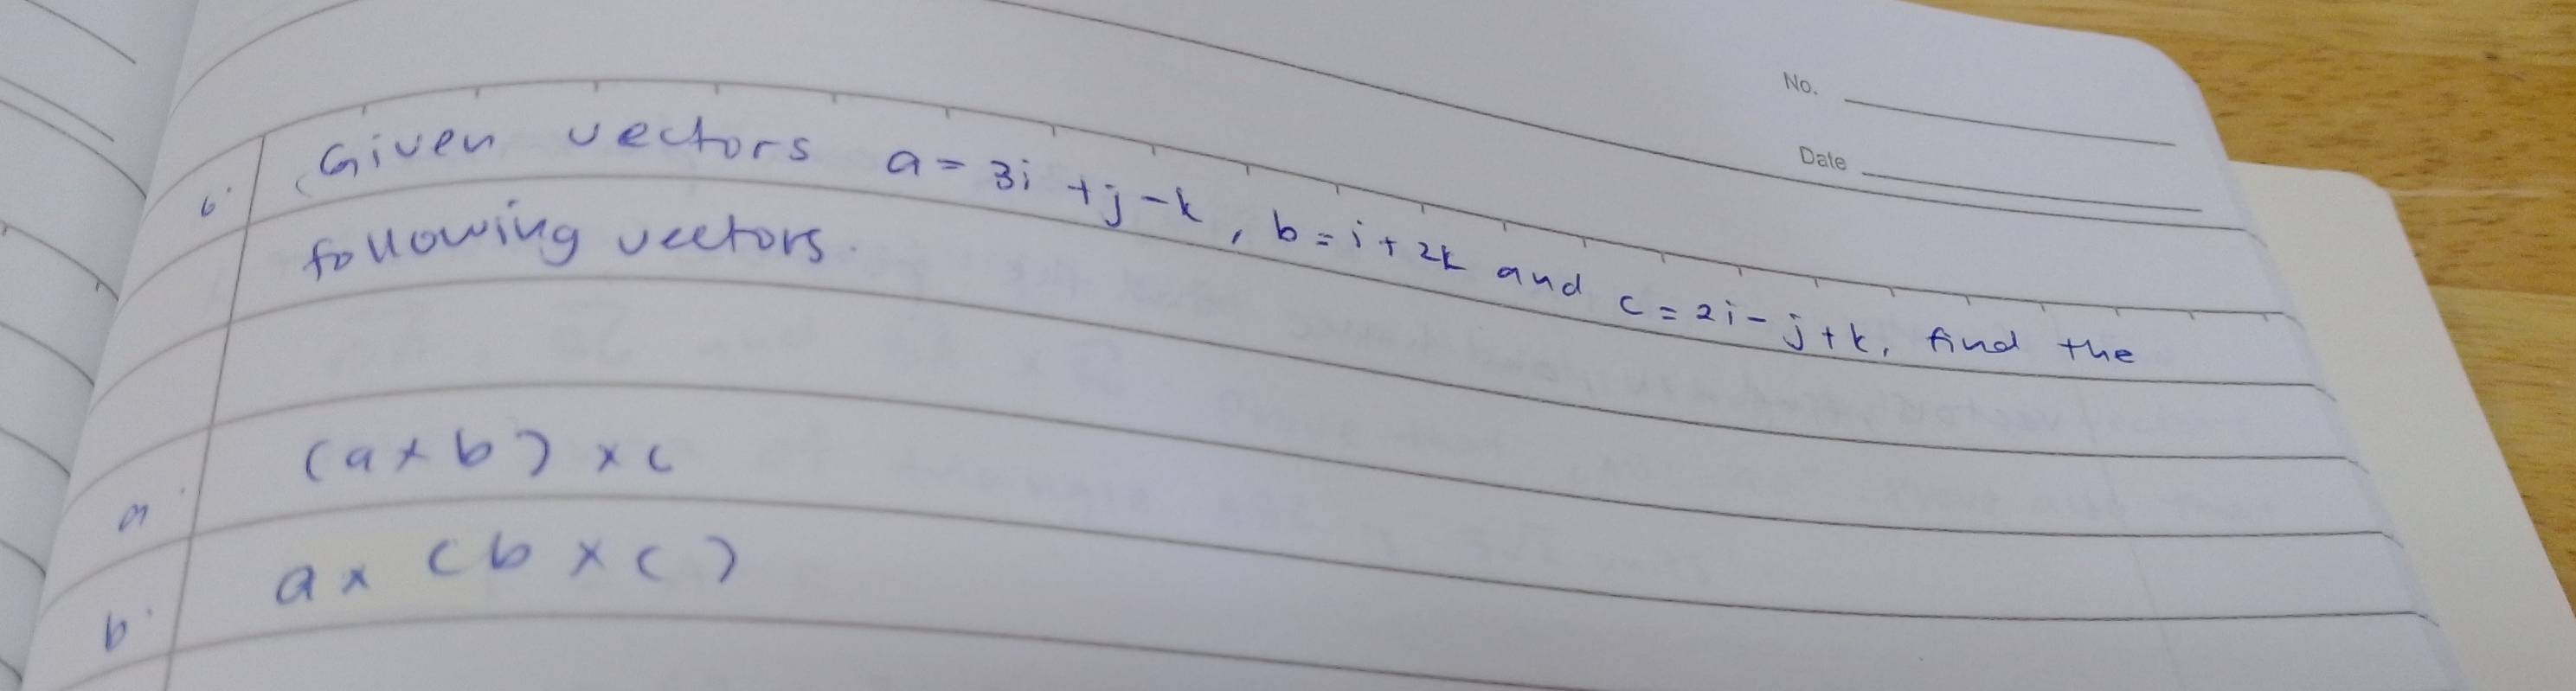 No.
Date
6. Given vectors a = 3i + j - k, b = i + 2k and c = 2i - j + k, find the
following vectors.
a. (a x b) x c
b. a x (b x c)